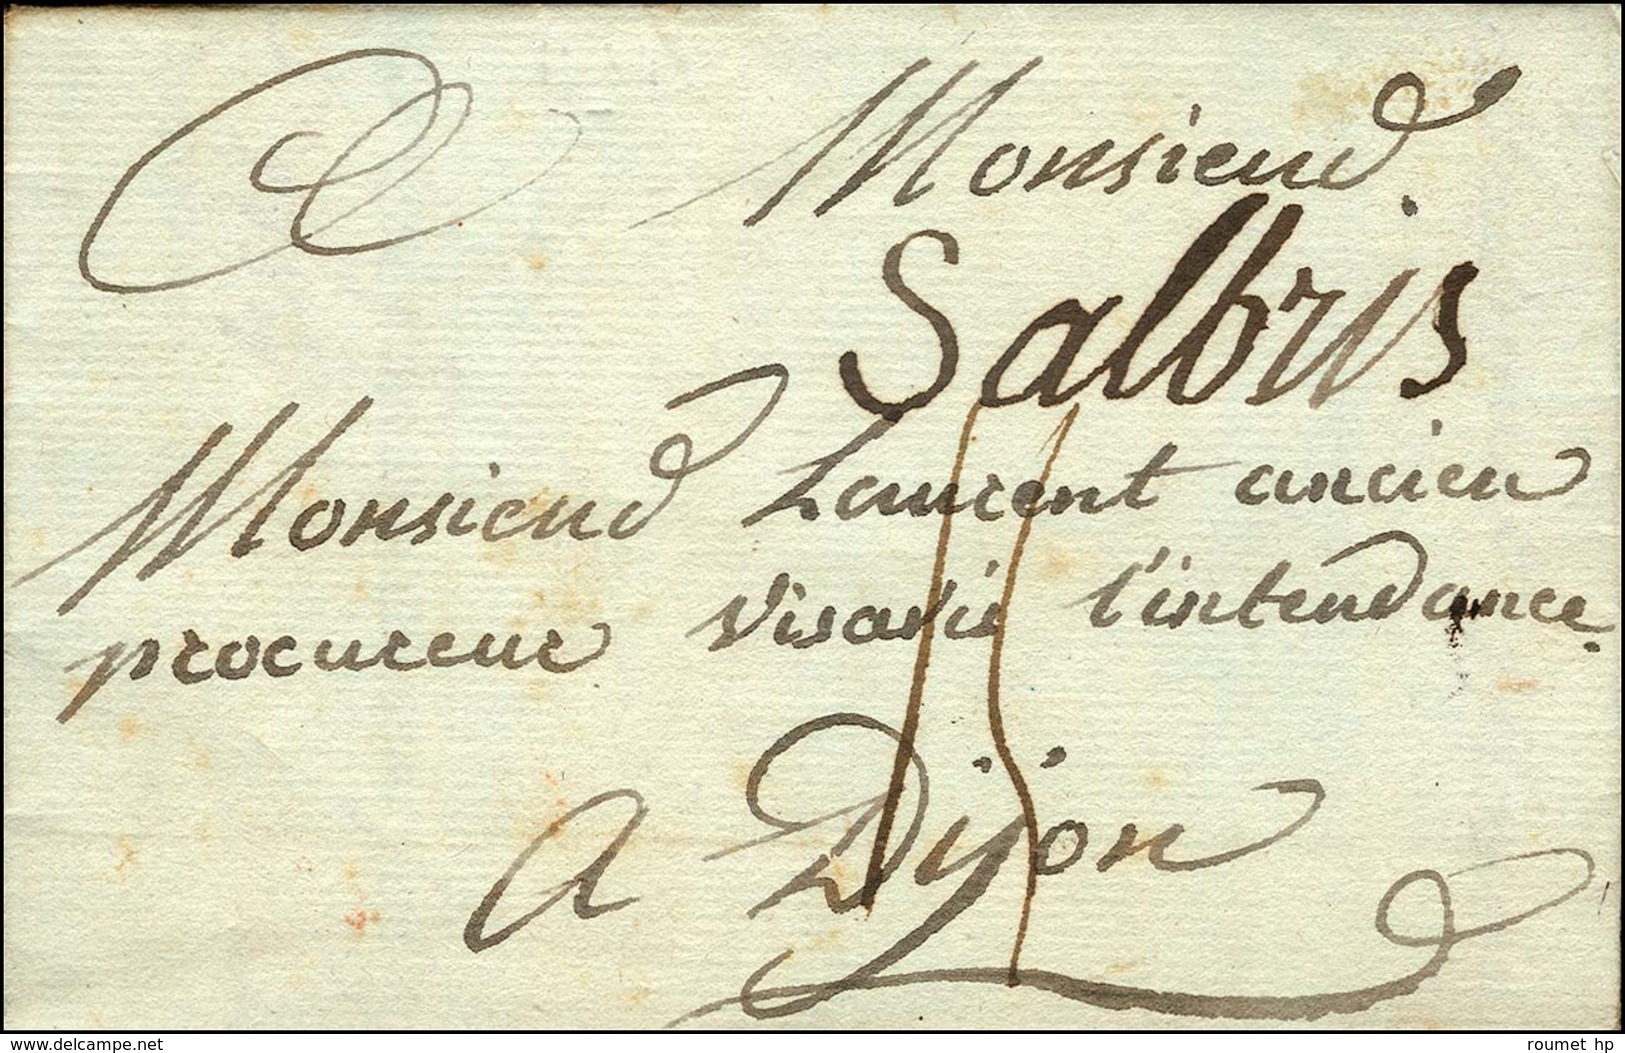 Monsieur
Salbris
Monsieur Laurent ancien
procureur visavis l'intendance.
A Dijon
delcampe.net
roumet hp